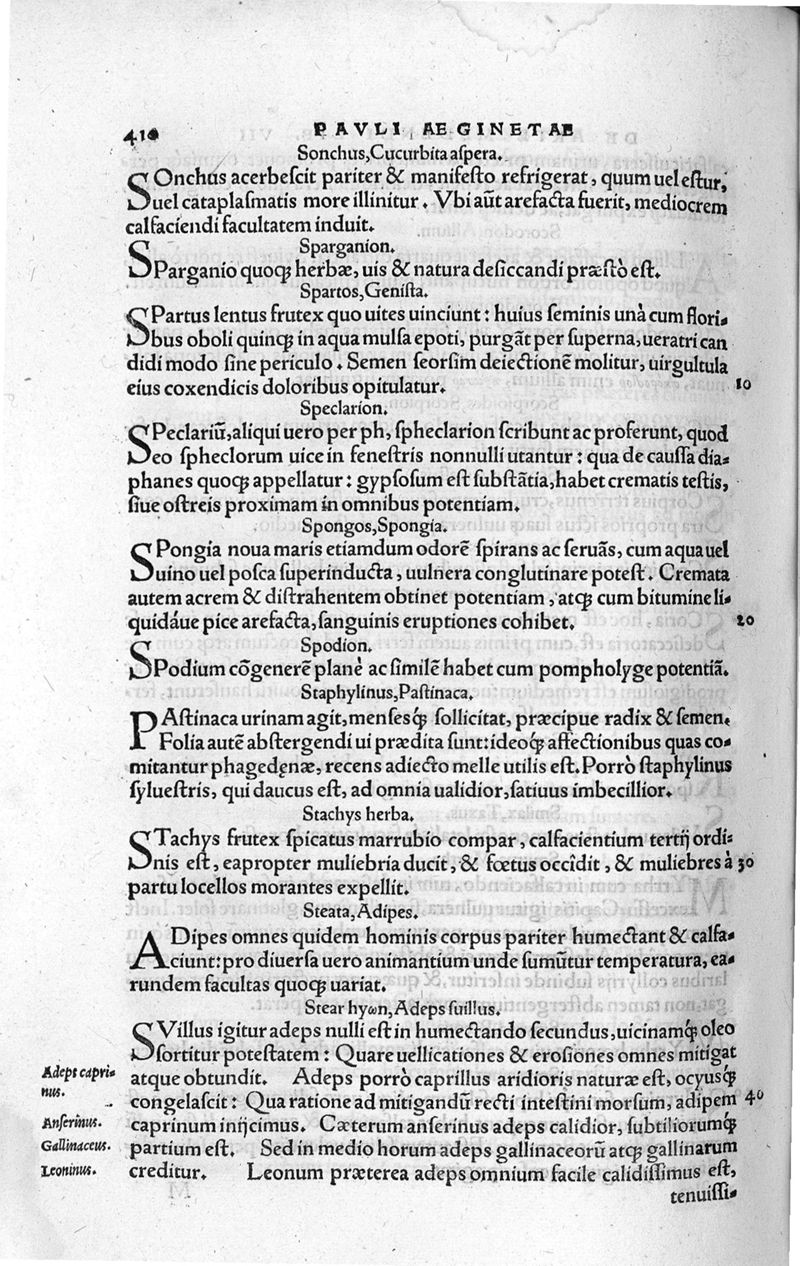 410 PAVLI AEGINETAE
Sonchus, Cucurbita aſpera.
SOnchus acerbeſcit pariter & manifeſto refrigerat, quum uel eſtur,
uel cataplaſmatis more illinitur. Vbi aūt arefacta fuerit, mediocrem
calfaciendi facultatem induit.
Sparganion.
SParganio quoq; herbæ, uis & natura deſiccandi præſtò eſt.
Spartos, Geniſta.
SPartus lentus frutex quo uites uinciunt: huius ſeminis unà cum flori-
bus oboli quinq; in aqua mulſa epoti, purgāt per ſuperna, ueratri can
didi modo ſine periculo. Semen ſeorſim deiectionē molitur, uirgultula
eius coxendicis doloribus opitulatur. 10
Speclarion.
SPeclariū, aliqui uero per ph, ſpheclarion ſcribunt ac proferunt, quod
eo ſpheclorum uice in feneſtris nonnulli utantur: qua de cauſſa dia-
phanes quoq; appellatur: gypſoſum eſt ſubſtātia, habet crematis teſtis,
ſiue oſtreis proximam in omnibus potentiam.
Spongos, Spongia.
SPongia noua maris etiamdum odorē ſpirans ac ſeruās, cum aqua uel
uino uel poſca ſuperinducta, uulnera conglutinare poteſt. Cremata
autem acrem & diſtrahentem obtinet potentiam, atq; cum bitumine li-
quidáue pice arefacta, ſanguinis eruptiones cohibet. 20
Spodion.
SPodium cōgenerē planè ac ſimilē habet cum pompholyge potentiā.
Staphylinus, Paſtinaca.
PAſtinaca urinam agit, menſesq́; ſollicitat, præcipue radix & ſemen.
Folia autē abſtergendi ui prædita ſunt: ideoq́; affectionibus quas co-
mitantur phagedęnæ, recens adiecto melle utilis eſt. Porrò ſtaphylinus
ſylueſtris, qui daucus eſt, ad omnia ualidior, ſatiuus imbecillior.
Stachys herba.
STachys frutex ſpicatus marrubio compar, calfacientium tertij ordi-
nis eſt, eapropter muliebria ducit, & fœtus occîdit, & muliebres à 30
partu locellos morantes expellit.
Steata, Adipes.
ADipes omnes quidem hominis corpus pariter humectant & calfa-
ciunt: pro diuerſa uero animantium unde ſumūtur temperatura, ea-
rundem facultas quoq; uariat.
Stear hyωn, Adeps ſuillus.
SVillus igitur adeps nulli eſt in humectando ſecundus, uicinamq́; oleo
ſortitur poteſtatem: Quare uellicationes & eroſiones omnes mitigat
Adeps capri-
nus.
atque obtundit. Adeps porrò caprillus aridioris naturæ eſt, ocyusq́;
congelaſcit: Qua ratione ad mitigandū recti inteſtini morſum, adipem 40
Anſerinus.
caprinum inijcimus. Cæterum anſerinus adeps calidior, ſubtiliorumq́;
Gallinaceus.
partium eſt. Sed in medio horum adeps gallinaceorū atq; gallinarum
Leoninus.
creditur. Leonum præterea adeps omnium facile calidiſſimus eſt,
tenuiſſi-